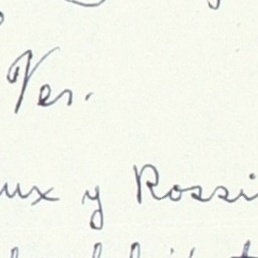 Ves.
ux y Rossi